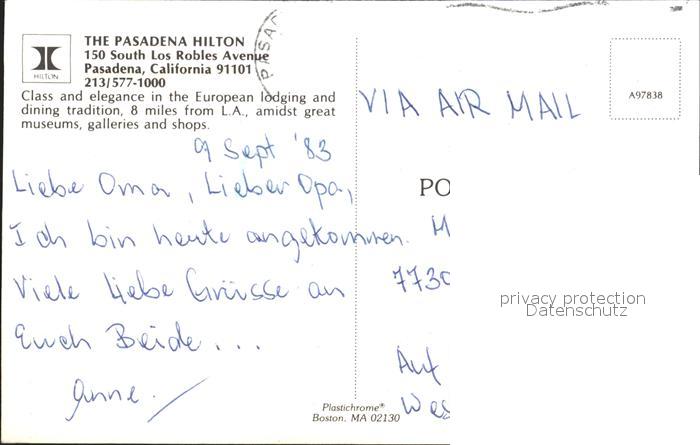 THE PASADENA HILTON
150 South Los Robles Avenue
Pasadena, California 91101
213/577-1000
HILTON
Class and elegance in the European lodging and
dining tradition, 8 miles from L.A., amidst great
museums, galleries and shops.
PASAD
9 Sept '83
Liebe Oma, Lieber Opa,
Ich bin heute angekommen.
Viele liebe Grüsse an
Euch Beide...
Anne.
VIA AIR MAIL
A97838
PO
M
7730
Auf
Wes
privacy protection
Datenschutz
Plastichrome®
Boston, MA 02130